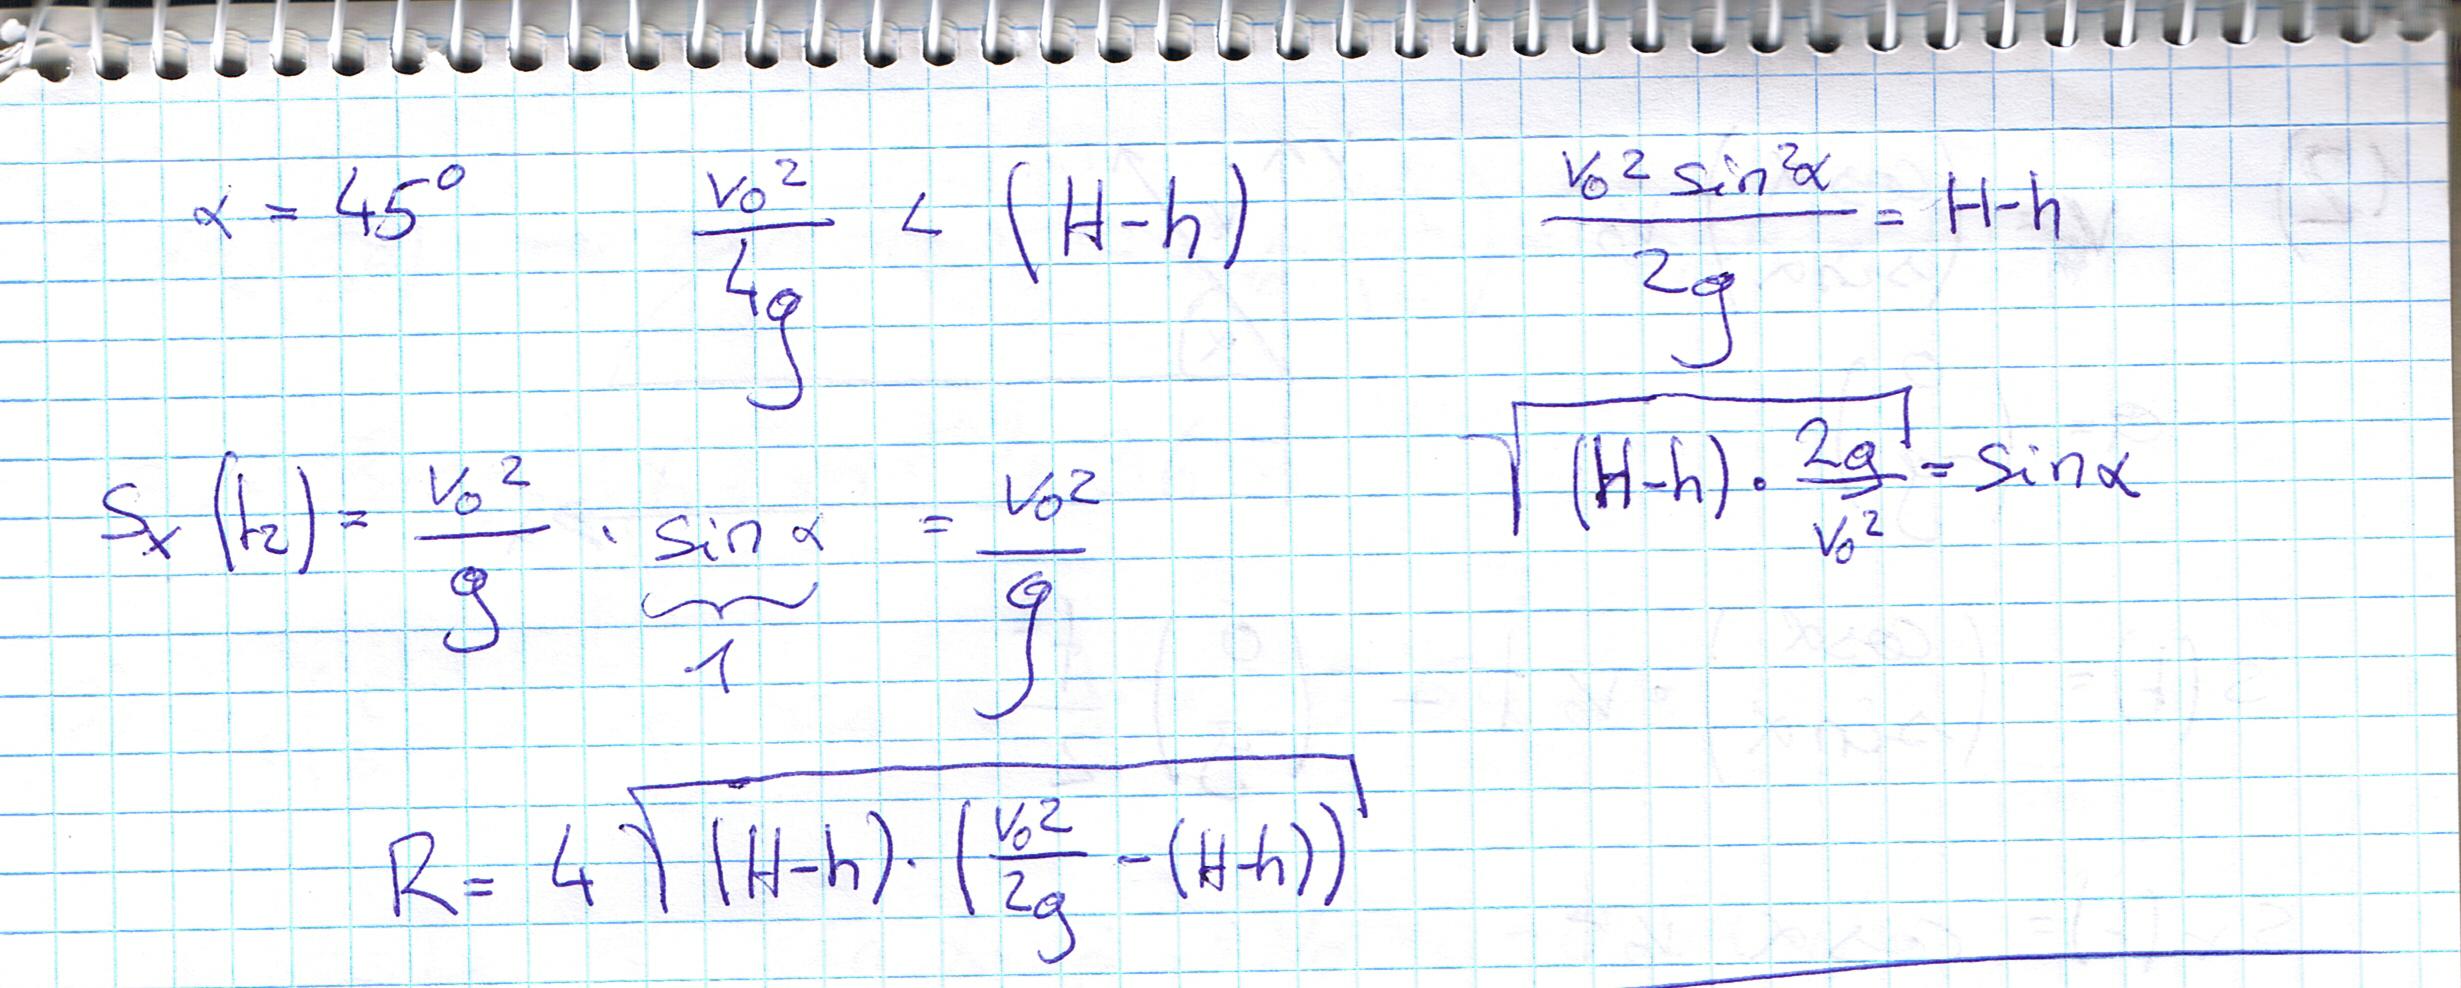 α = 45°
v₀²/4g < (H-h)
v₀² sin²α/2g = H-h
√((H-h) · 2g/v₀²) = sin α
Sₓ(t₂) = v₀²/g · sin α = v₀²/g
1
R = 4√((H-h) · (v₀²/2g - (H-h)))